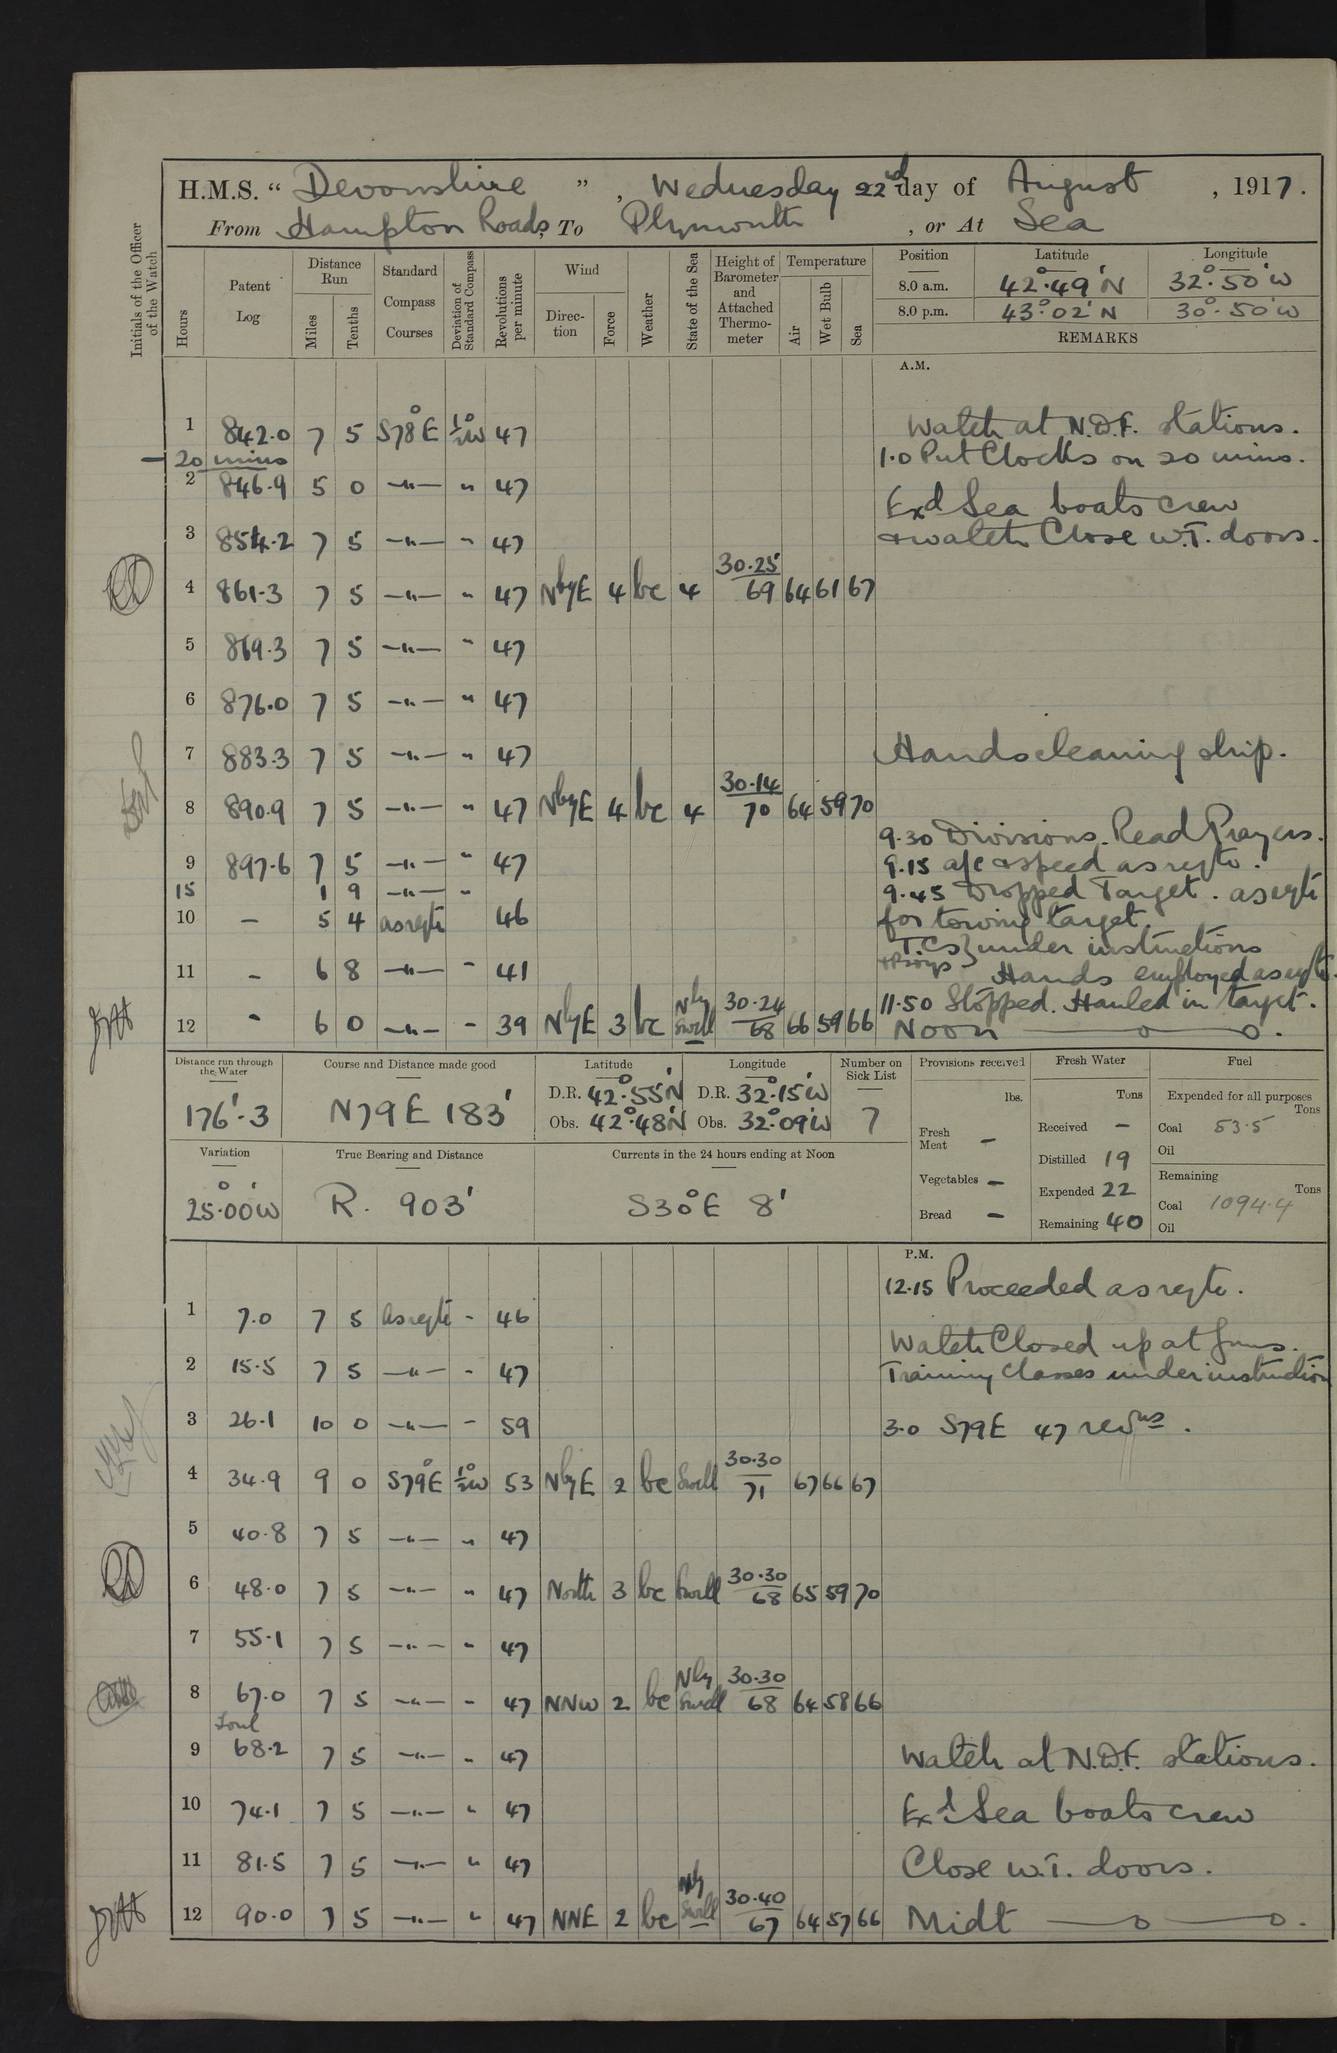 H.M.S. “ Devonshire ” , Wednesday 22nd day of August , 1917.
From Hampton Roads, To Plymouth , or At Sea
Initials of the Officer of the Watch
Hours
Patent Log
Distance Run
Miles
Tenths
Standard Compass Courses
Deviation of Standard Compass
Revolutions per minute
Wind
Direction
Force
Weather
State of the Sea
Height of Barometer and Attached Thermometer
Temperature
Air
Wet Bulb
Sea
Position Latitude Longitude
8.0 a.m. 42°.49' N 32°.50' W
8.0 p.m. 43°.02' N 30°.50' W
REMARKS
A.M.
1 842.0 7 5 S78°E ½°W 47 Watch at N.D.F. stations.
20 mins 1.0 Put Clocks on 20 mins.
2 846.9 5 0 —"— " 47 Exd Sea boats crew
3 854.2 7 5 —"— " 47 & watch Close W.T. doors.
4 861.3 7 5 —"— " 47 NbyE 4 bc 4 30.25 69 64 61 67
5 869.3 7 5 —"— " 47
6 876.0 7 5 —"— " 47
7 883.3 7 5 —"— " 47 Hands cleaning ship.
8 890.9 7 5 —"— " 47 NbyE 4 bc 4 30.14 70 64 59 70
9.30 Divisions. Read Prayers.
9 897.6 7 5 —"— " 47 9.15 a/c & speed as reqte.
15 1 9 —"— " 9.45 Dropped Target. as reqte
10 – 5 4 as reqte 46 for towing target.
T.Cs } under instructions
& Pboys
11 – 6 8 —"— " 41 Hands employed as reqte.
11.50 Stopped. Hauled in target.
12 " 6 0 —"— – 39 NbyE 3 bc Nly Swell 30.24 68 66 59 66 Noon
Distance run through the Water
176'.3
Course and Distance made good
N79E 183'
Latitude
D.R. 42°.55'N
Obs. 42°.48'N
Longitude
D.R. 32°.15'W
Obs. 32°.09'W
Number on Sick List
7
Variation
25°.00'W
True Bearing and Distance
R. 903'
Currents in the 24 hours ending at Noon
S30°E 8'
Provisions received
lbs.
Fresh Meat –
Vegetables –
Bread –
Fresh Water
Tons
Received –
Distilled 19
Expended 22
Remaining 40
Fuel
Expended for all purposes
Tons
Coal 53.5
Oil
Remaining
Tons
Coal 1094.4
Oil
P.M.
12.15 Proceeded as reqte.
1 7.0 7 5 as reqte – 46
Watch Closed up at Guns.
2 15.5 7 5 —"— – 47 Training Classes under instruction
3 26.1 10 0 —"— – 59 3.0 S79E 47 revns.
4 34.9 9 0 S79°E ½°W 53 NbyE 2 bc Swell 30.30 71 67 66 67
5 40.8 7 5 —"— " 47
6 48.0 7 5 —"— " 47 North 3 bc Swell 30.30 68 65 59 70
7 55.1 7 5 —"— " 47
8 67.0 7 5 —"— " 47 NNW 2 bc Nly Swell 30.30 68 64 58 66
Foul
9 68.2 7 5 —"— " 47 Watch at N.D.F. stations.
10 74.1 7 5 —"— " 47 Exd Sea boats crew
11 81.5 7 5 —"— " 47 Close W.T. doors.
12 90.0 7 5 —"— " 47 NNE 2 bc Nly Swell 30.40 67 64 57 66 Midt